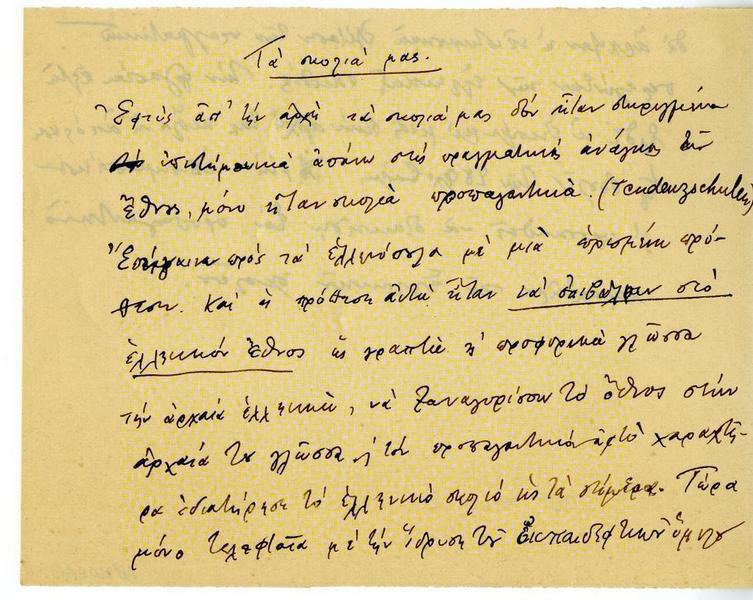 Τὰ σκολιά μας.
Ἐφτὺς ἀπ' τὴν ἀρχὴ τὰ σκολιά μας δὲν ἦταν στηριγμένα
ἐπιστημονικὰ ἀπάνω στὶς πραγματικὲς ἀνάγκες τοῦ
Ἔθνους, μόνο ἦταν σκολιὰ προπαγαντικά. (Tendenzschulen)
πρὸς τὰ ἑλληνόπουλα μὲ μιὰ ὁρισμένη πρό-
θεση. Καὶ ἡ πρόθεση ἀυτὴ ἦταν νὰ ἐπιβάλουν στὸ
ἑλληνικὸν ἔθνος ὡς γραπτὴ κ' προφορικὴ γλῶσσα
τὴν ἀρχαία ἑλληνική, νὰ ξαναγυρίσουν τὸ ἔθνος στὴν
ἀρχαία του γλῶσσα κ' τὸν προπαγαντικὸ ἀφτὸ χαραχτή-
ρα ἐδιατήρησε τὸ ἑλληνικὸ σκολιὸ ὡς τὰ σήμερα. Τώρα
μόνο τελεφταῖα μὲ τὴν ἵδρυση τοῦ Ἐκπαιδεφτικοῦ ὁμίλου